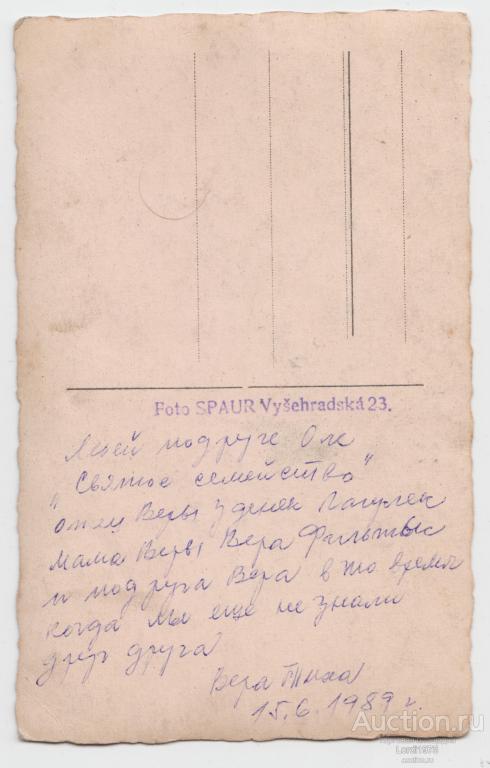 Foto SPAUR Vyšehradská 23.
Моей подруге Оле
"Святое семейство"
отец Веры Зденек
мама Веры Вера
и подруга Вера в то время
когда мы еще не знали
друг друга
Вера Тиха
15.6.1989 г.
Auction.ru
Lordi1976
auction.ru